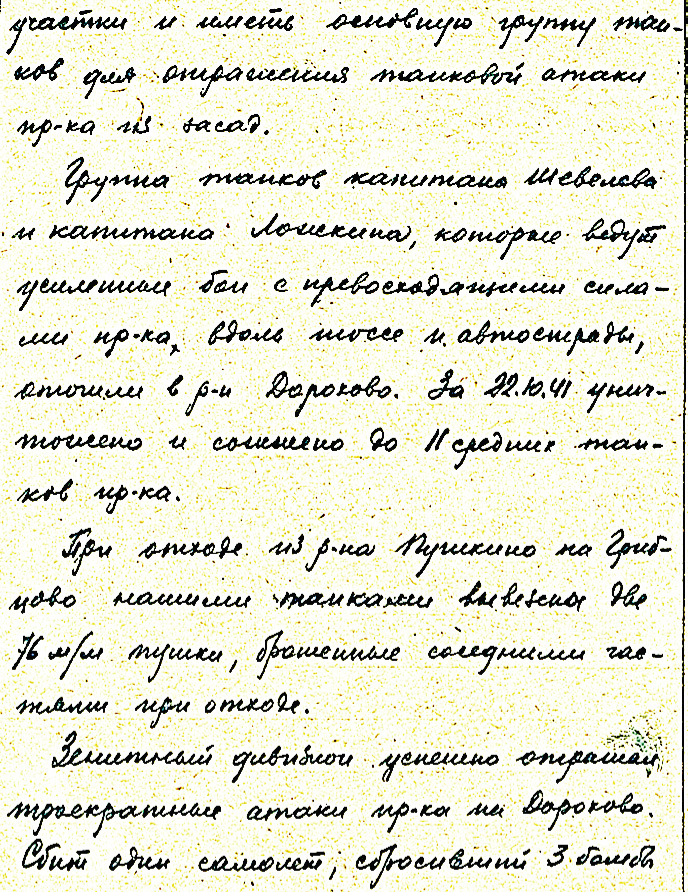 участки и иметь основную группу тан-
ков для отражения танковой атаки
пр-ка из засад.
Группа танков капитана Шевелева
и капитана Ложкина, которые ведут
усиленные бои с превосходящими сила-
ми пр-ка, вдоль шоссе и автострады,
отошли в р-н Дорохово. За 22.10.41 унич-
тожено и сожжено до 11 средних тан-
ков пр-ка.
При отходе из р-на Пушкино на Гриб-
цово нашими танками вывезены две
76 м/м пушки, брошенные соседними час-
тями при отходе.
Зенитный дивизион успешно отражал
троекратные атаки пр-ка на Дорохово.
Сбит один самолет, сбросивший 3 бомбы